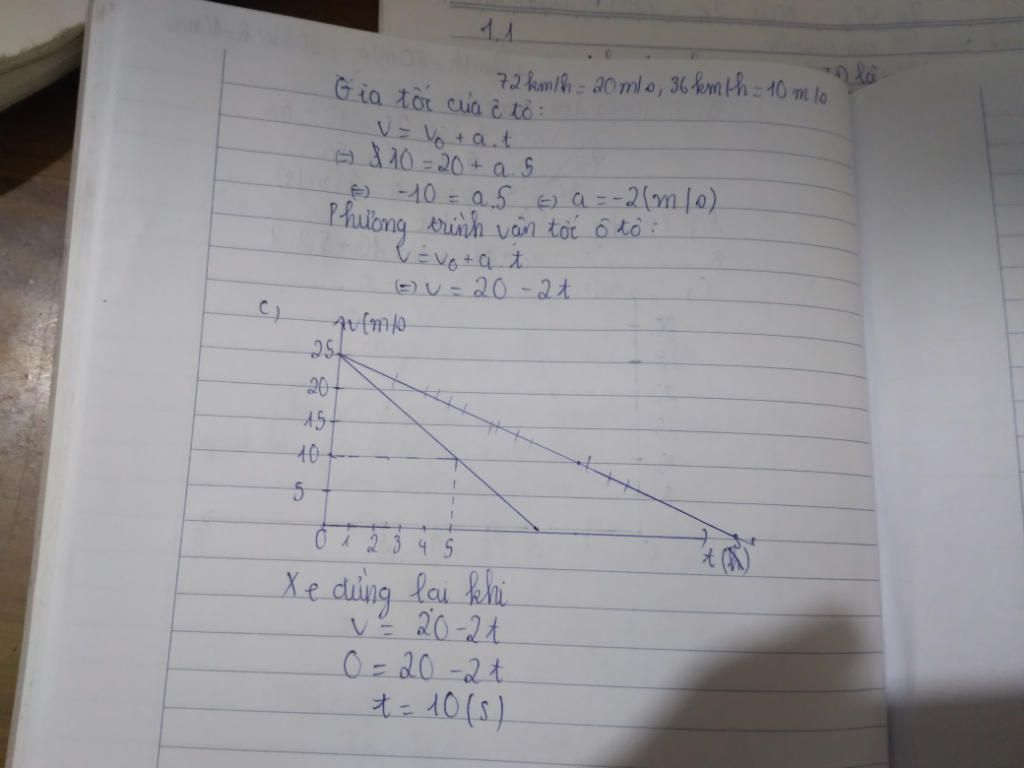 1.1
72 km/h = 20 m/s, 36 km/h = 10 m/s
Gia tốc của ô tô:
v = v₀ + a.t
⇔ 10 = 20 + a.5
⇔ -10 = a.5 ⇔ a = -2 (m/s)
Phương trình vận tốc ô tô:
v = v₀ + a.t
⇔ v = 20 - 2t
c)
v (m/s
25
20
15
10
5
0 1 2 3 4 5
t
Xe dừng lại khi
v = 20 - 2t
0 = 20 - 2t
t = 10 (s)